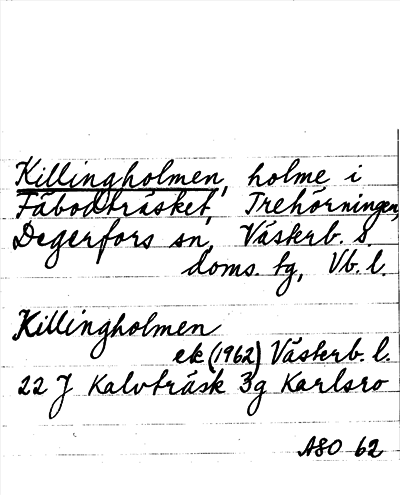 Killingholmen, holme i
Fäbodträsket, Trehörningen,
Degerfors sn, Västerb. s.
doms. tg, Vb. l.
Killingholmen
ek (1962) Västerb. l.
22 J Kalvträsk 3g Karlsro
ASO 62